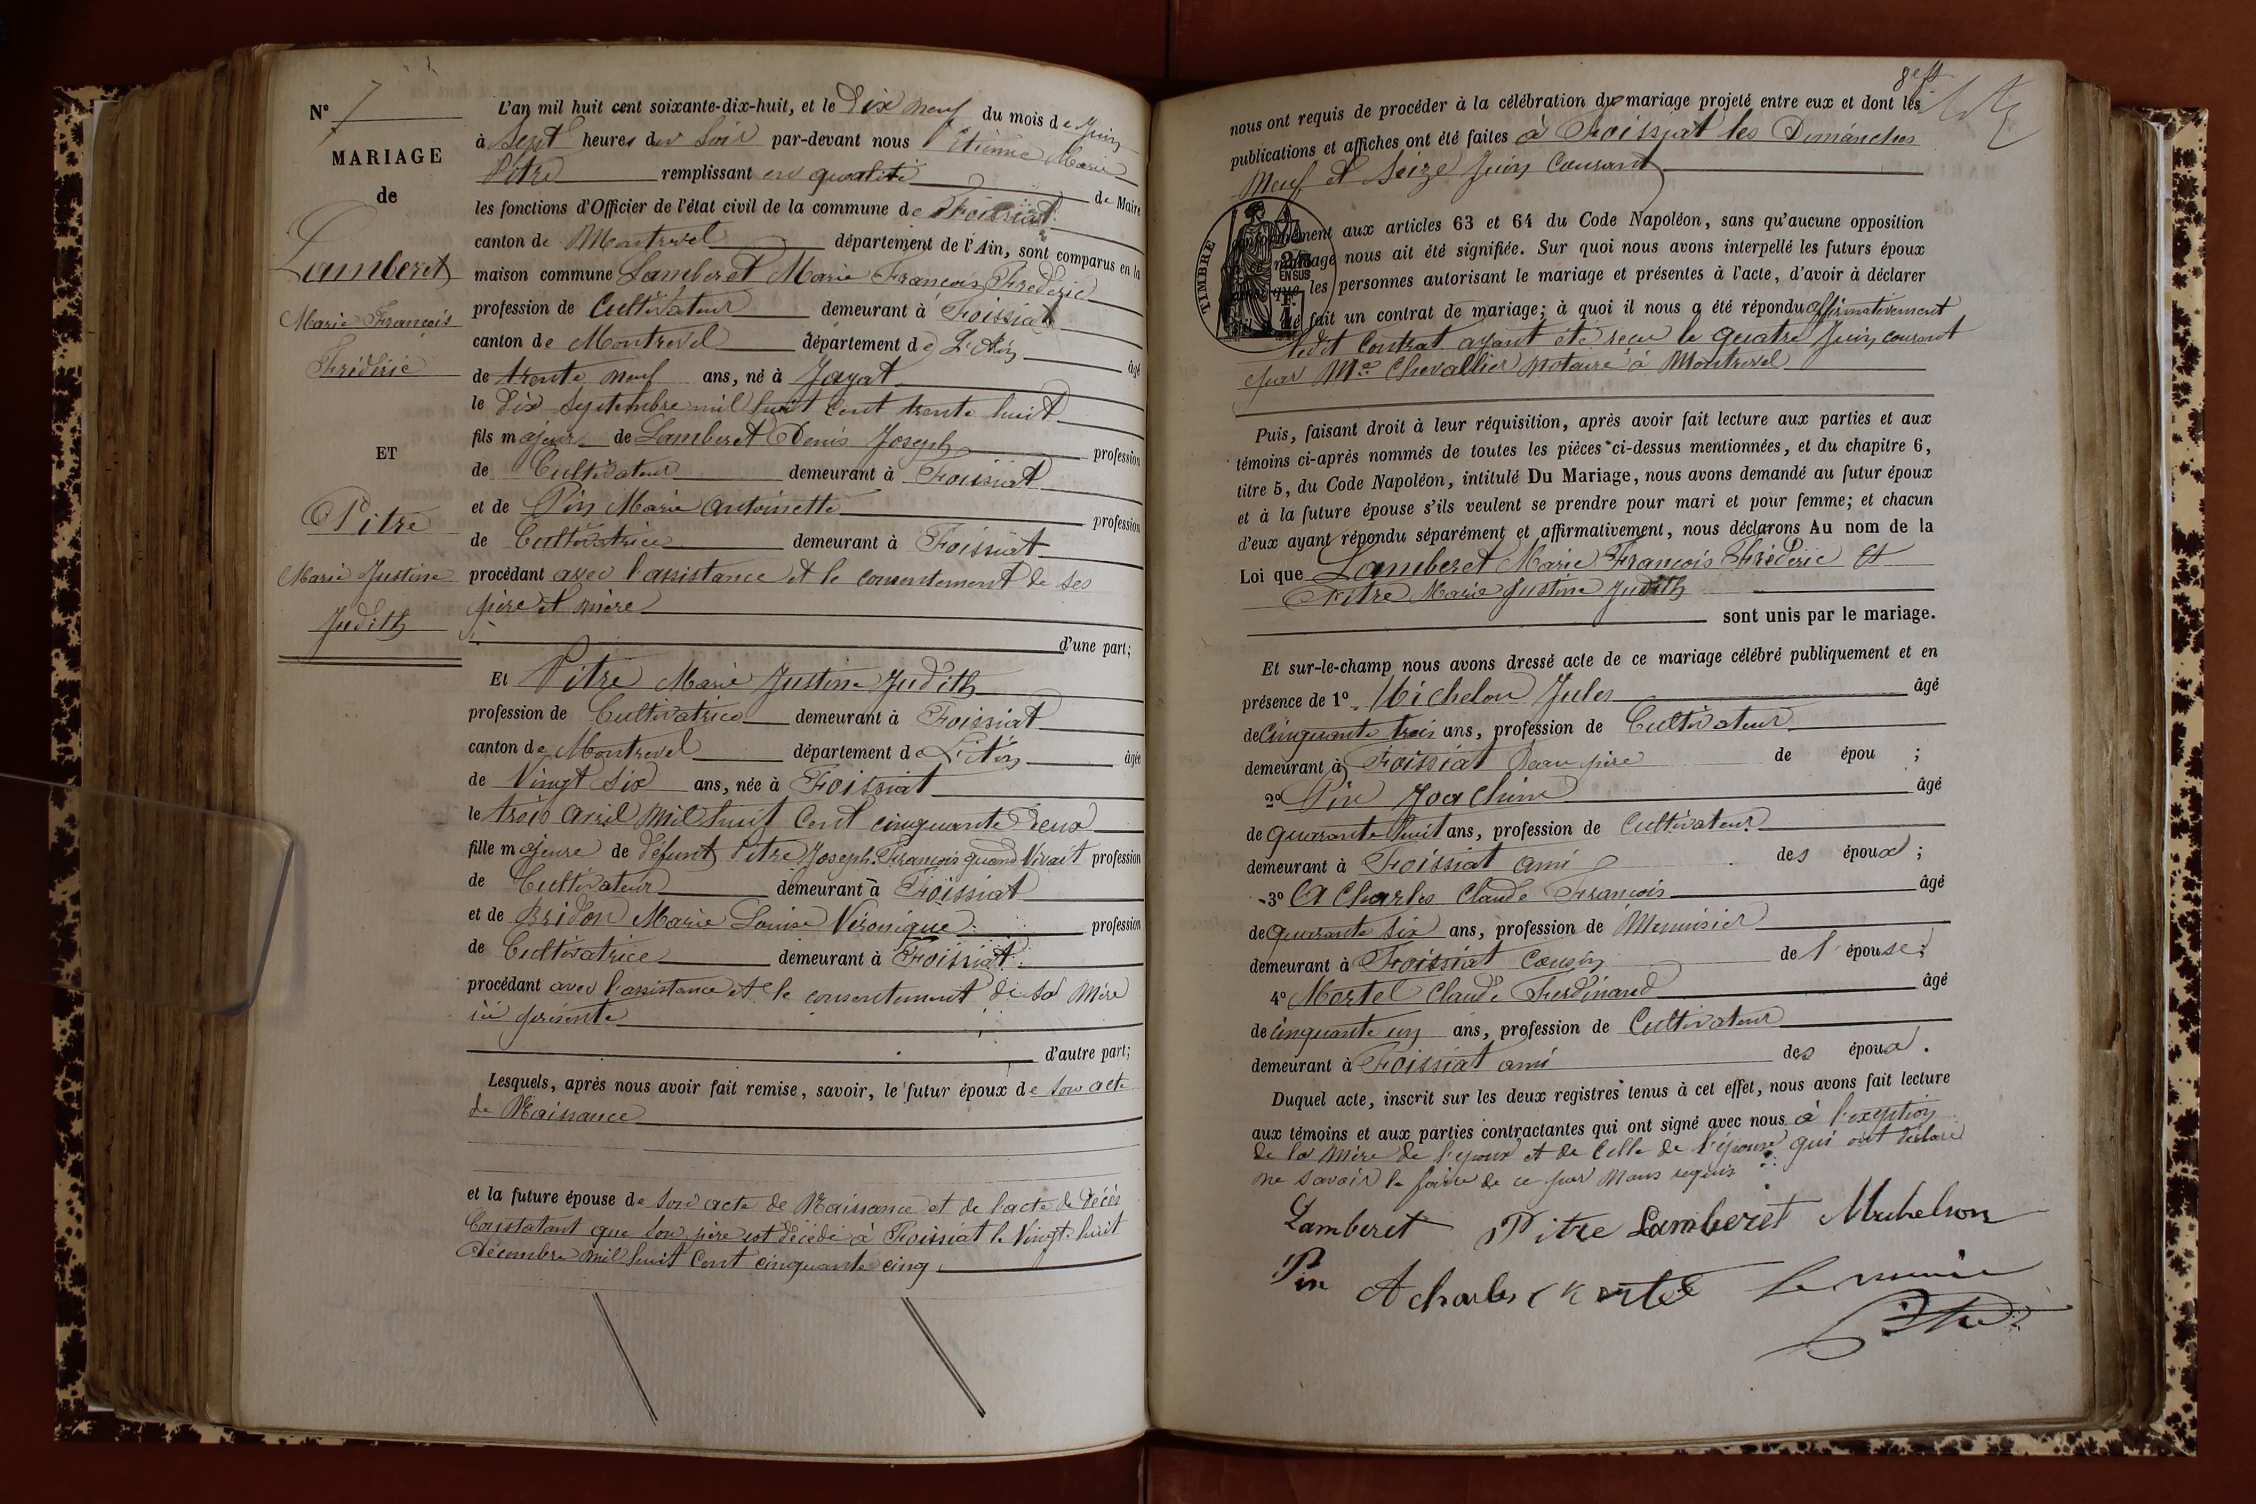 N° 7
MARIAGE
de
Lamberet
Marie François
Frédéric
ET
Pitre
Marie Justine
Judith
L'an mil huit cent soixante-dix-huit, et le Dix neuf du mois de Juin
à Sept heures du Soir par-devant nous Etienne Marie
Pitre remplissant en qualité de Maire
les fonctions d'Officier de l'état civil de la commune de Foissiat
canton de Montrevel département de l'Ain, sont comparus en la
maison commune Lamberet Marie François Frédéric
profession de Cultivateur demeurant à Foissiat
canton de Montrevel département de L'Ain âgé
de trente neuf ans, né à Jayat
le Dix Septembre mil huit cent trente huit
fils majeur de Lamberet Denis Joseph profession
de Cultivateur demeurant à Foissiat
et de Pin Marie Antoinette profession
de Cultivatrice demeurant à Foissiat
procédant avec l'assistance et le consentement de ses
père et mère
d'une part;
Et Pitre Marie Justine Judith
profession de Cultivatrice demeurant à Foissiat
canton de Montrevel département de L'Ain âgée
de Vingt Six ans, née à Foissiat
le trois avril mil huit Cent cinquante Deux
fille majeure de défunt Pitre Joseph François quand Vivait profession
de Cultivateur demeurant à Foissiat
et de Bridon Marie Louise Véronique profession
de Cultivatrice demeurant à Foissiat
procédant avec l'assistance et le consentement de sa Mère
ici présente
d'autre part;
Lesquels, après nous avoir fait remise, savoir, le futur époux de son acte
de Naissance
et la future épouse de son acte de Naissance et de l'acte de décès
Constatant que son père est Décédé à Foissiat le Vingt huit
Décembre mil huit Cent cinquante cinq
8e ft
nous ont requis de procéder à la célébration du mariage projeté entre eux et dont les
publications et affiches ont été faites à Foissiat les Dimanches
Neuf et Seize Juin Courant
TIMBRE
2/10
EN SUS
conformément aux articles 63 et 64 du Code Napoléon, sans qu'aucune opposition
mariage nous ait été signifiée. Sur quoi nous avons interpellé les futurs époux
que les personnes autorisant le mariage et présentes à l'acte, d'avoir à déclarer
été fait un contrat de mariage; à quoi il nous a été répondu affirmativement
ledit Contrat ayant été reçu le quatre Juin courant
par Me Chevallier notaire à Montrevel
Puis, faisant droit à leur réquisition, après avoir fait lecture aux parties et aux
témoins ci-après nommés de toutes les pièces ci-dessus mentionnées, et du chapitre 6,
titre 5, du Code Napoléon, intitulé Du Mariage, nous avons demandé au futur époux
et à la future épouse s'ils veulent se prendre pour mari et pour femme; et chacun
d'eux ayant répondu séparément et affirmativement, nous déclarons Au nom de la
Loi que Lamberet Marie François Frédéric Et
Pitre Marie Justine Judith
sont unis par le mariage.
Et sur-le-champ nous avons dressé acte de ce mariage célébré publiquement et en
présence de 1° Michelon Jules âgé
de Cinquante trois ans, profession de Cultivateur
demeurant à Foissiat Beau père de épou ;
2° Pin Joachim âgé
de quarante huit ans, profession de Cultivateur
demeurant à Foissiat ami des époux ;
3° A Charles Claude François âgé
de quarante six ans, profession de Menuisier
demeurant à Foissiat Cousin de l'épouse;
4° Mortel Claude Ferdinand âgé
de cinquante un ans, profession de Cultivateur
demeurant à Foissiat ami des époux.
Duquel acte, inscrit sur les deux registres tenus à cet effet, nous avons fait lecture
aux témoins et aux parties contractantes qui ont signé avec nous à l'exeption
de la Mère de l'époux et de Celle de l'épouse qui ont déclaré
ne savoir le faire de ce par Nous requis
Lamberet Pitre Lamberet Michelon
Pin A charles Mortel le maire
Pitre